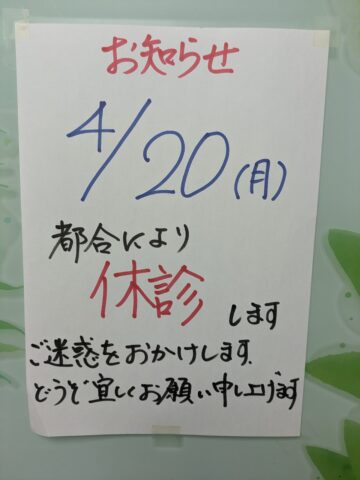 お知らせ
4/20(月)
都合により
休診 します
ご迷惑をおかけします.
どうぞ宜しくお願い申し上げます